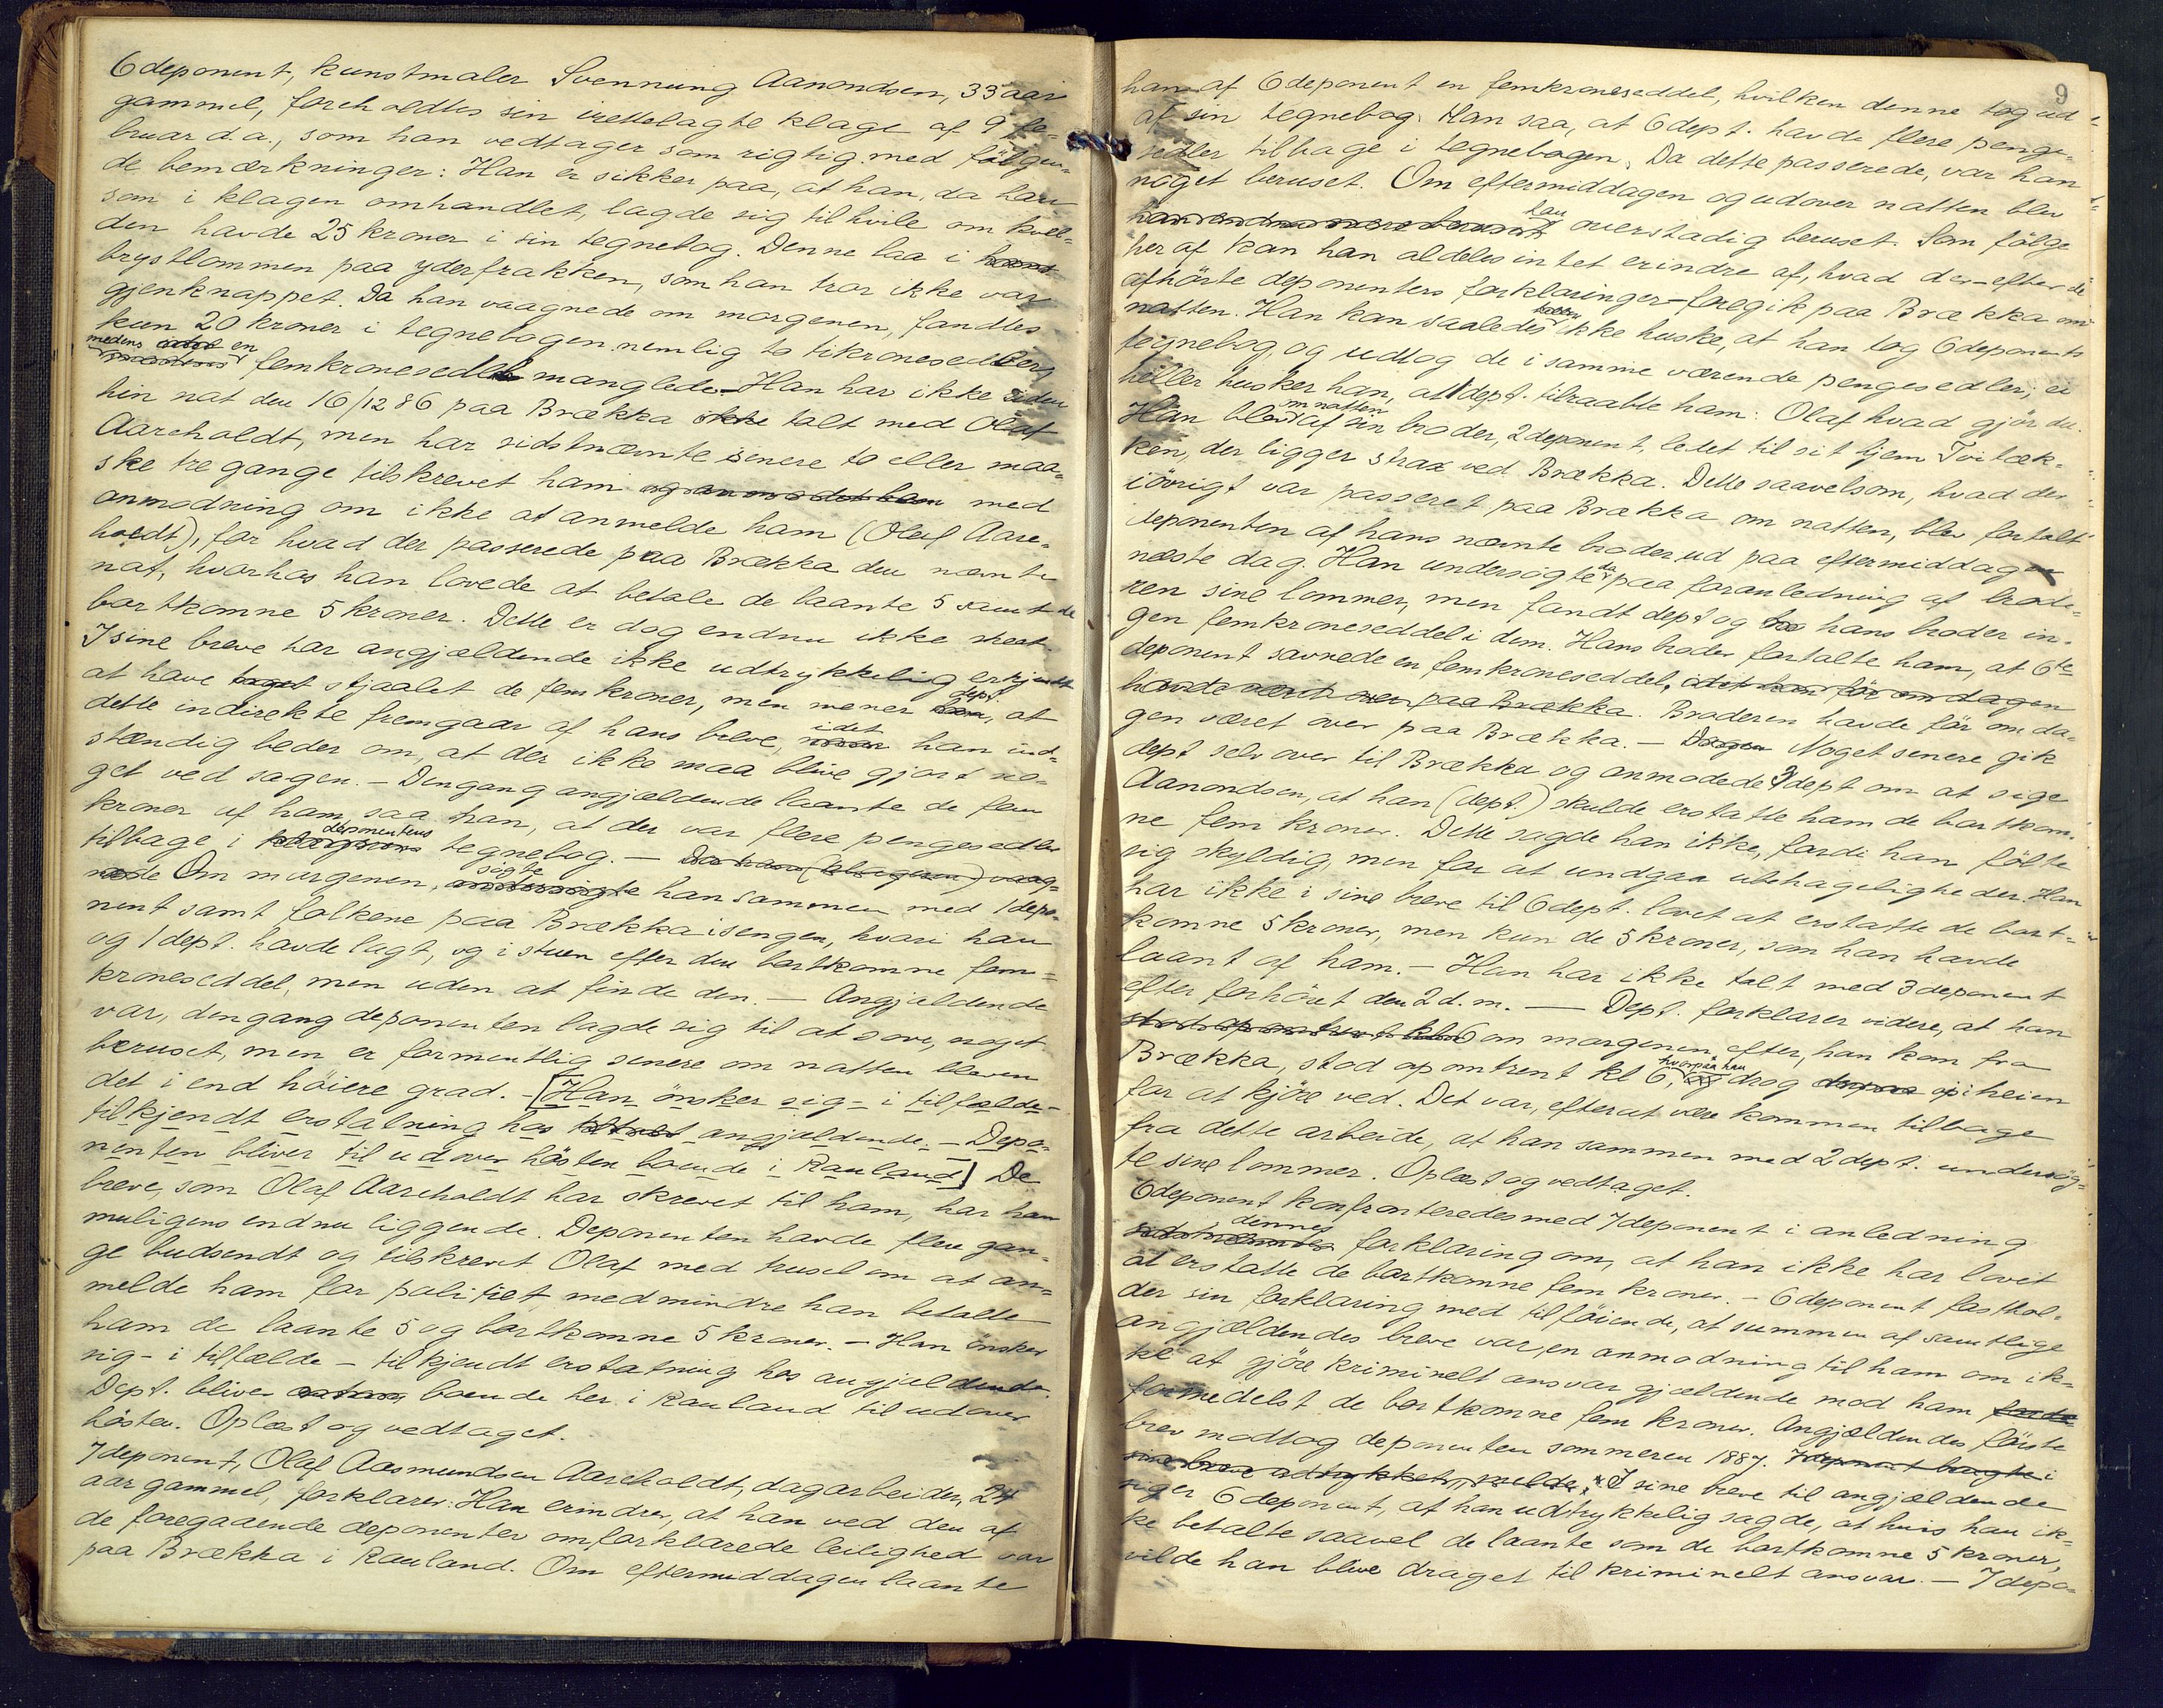 6 deponent, kunstmaler Svennung Aanondsen, 33 aar
gammel, foreholdtes sin irettelagte klage af 9 fe-
bruar d.a., som han vedtager som rigtig med følgen-
de bemærkninger: Han er sikker paa, at han, da han
som i klagen omhandlet, lagde sig til hvile om kvel-
den havde 25 kroner i sin tegnebog. Denne laa i hans
brystlommen paa yderfrakken, som han tror ikke var
gjenknappet. Da han vaagnede om morgenen, fandtes
kun 20 kroner i tegnebogen nemlig to tikronesedler,
medens en
femkroneseddel manglede. Han har ikke siden
hin nat den 16/12 86 paa Brækka ikke talt med Olaf
Aareholdt, men har sidstnævnte senere to eller maa-
ske tre gange tilskrevet ham og anmodet ham med
anmodning om ikke at anmelde ham (Olaf Aare-
holdt), for hvad der passerede paa Brækka den nævnte
nat, hvorhos han lovede at betale de laante 5 samt de
bortkomne 5 kroner. Dette er dog endnu ikke skeet.
I sine breve har angjældende ikke udtrykkelig erkjendt
dept.
at have taget stjaalet de fem kroner, men mener at
idet
dette indirekte fremgaar af hans breve, han ind-
stændig beder om, at der ikke maa blive gjort no-
get ved sagen. – Dengang angjældende laante de fem
kroner af ham, saa han, at der var flere pengesedler
deponentens
tilbage i klagerens tegnebog. – Da han (klageren) vaag-
søgte
nede Om morgenen, undersøgte han sammen med 1 depo-
nent samt folkene paa Brækka i sengen, hvori han
og 1 dept. havde lagt, og i stuen efter den bortkomne fem-
kroneseddel, men uden at finde den. – Angjældende
var, dengang deponenten lagde sig til at sove, noget
beruset, men er formentlig senere om natten bleven
det i end høiere grad. – [Han ønsker sig – i tilfælde –
tilkjendt erstatning hos angjældende. – Depo-
nenten bliver til udover høsten boende i Rauland] De
breve, som Olaf Aareholdt har skrevet til ham, har han
muligens endnu liggende. Deponenten havde flere gan-
ge budsendt og tilskrevet Olaf med trusel om at an-
melde ham for politiet, medmindre han betalte
ham de laante 5 og bortkomne 5 kroner. – Han ønsker
sig – i tilfælde – tilkjendt erstatning hos angjældende.
Dept. bliver boende her i Rauland til udover
høsten. Oplæst og vedtaget.
7 deponent, Olaf Aasmundsen Aareholdt, dagarbeider, 24
aar gammel, forklarer: Han erindrer, at han ved den af
de foregaaende deponenter omforklarede leilighed var
paa Brækka i Rauland. Om eftermiddagen laante
9
han af 6 deponent en femkroneseddel, hvilken denne tog ud
af sin tegnebog. Han saa, at 6 dept. havde flere penge-
sedler tilbage i tegnebogen. Da dette passerede, var han
noget beruset. Om eftermiddagen og udover natten blev
han
han endnu mere beruset overstadig beruset. Som følge
heraf kan han aldeles intet erindre af, hvad der – efter de
afhørte deponenters forklaringer – foregik paa Brækka om
natten. Han kan saaledes ikke huske, at han tog 6 deponents
tegnebog, og udtog de i samme værende pengesedler; ei
heller husker han, at 1 dept. tilraabte ham: Olaf hvad gjør du.
om natten
Han blev af sin broder, 2 deponent, ledet til sit hjem Tvitæk-
ken, der ligger strax ved Brækka. Dette saavelsom, hvad der
iøvrigt var passeret paa Brækka om natten, blev fortalt
deponenten af hans nævnte broder ud paa eftermiddagen
da
næste dag. Han undersøgte paa foranledning af brode-
ren sine lommer, men fandt dept og hans broder in-
gen femkroneseddel i dem. Hans broder fortalte ham, at 6te
deponent savnede en femkroneseddel, idet han før om dagen
havde været over paa Brækka. Broderen havde før om da-
gen været over paa Brækka. – Dagen Noget senere gik
dept selv over til Brækka og anmodede 3 dept om at sige
Aanondsen, at han (dept.) skulde erstatte ham de bortkom-
ne fem kroner. Dette sagde han ikke, fordi han følte
sig skyldig, men for at undgaa ubehageligheder. Han
har ikke i sine breve til 6 dept. lovet at erstatte de bort-
komne 5 kroner, men kun de 5 kroner, som han havde
laant af ham. – Han har ikke talt med 3 deponent
efter forhøret den 2 d.m. – Dept. forklarer videre, at han
stod op omtrent kl 6 om morgenen efter, han kom fra
hvorpaa han
Brækka, stod op omtrent kl 6, og drog op i heien
for at kjøre ved. Det var, efterat være kommen tilbage
fra dette arbeide, at han sammen med 2 dept. undersøg-
te sine lommer. Oplæst og vedtaget.
6 deponent konfronteredes med 7 deponent i anledning
dennes
sidstnævntes forklaring om, at han ikke har lovet
at erstatte de bortkomne fem kroner. – 6 deponent fasthol-
der sin forklaring med tilføiende, at summen af samtlige
angjældendes breve var, en anmodning til ham om ik-
ke at gjøre kriminelt ansvar gjældende mod ham
formedelst de bortkomne fem kroner. Angjældendes første
brev modtog deponenten sommeren 1887. 7 deponent brugte i
sine breve udtrykket, I sine breve til angjældende
siger 6 deponent, at han udtrykkelig sagde, at hvis han ik-
ke betalte saavel de laante som de bortkomne 5 kroner,
vilde han blive draget til kriminelt ansvar. – 7 depo-